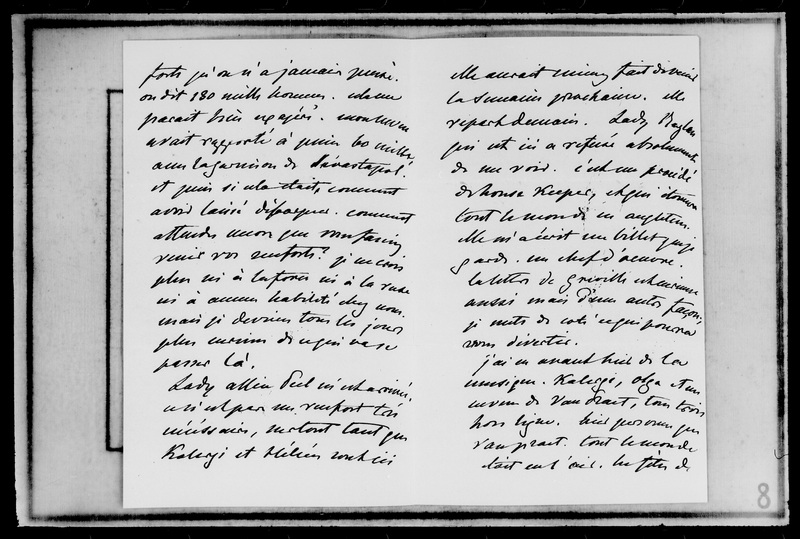 forts qu'on n'a jamais pensé.
on dit 180 mille hommes. cela me
parait bien exagéré. mon
avait rapporté à peine 60 mille
avec la garnison de Sévastopol.
et puis si cela était, comment
avoir laissé débarquer. comment
attendre encore que vous fassiez
venir vos renforts? je ne crois
plus ni à la force ni à la ruse
ni à aucune habileté chez nous.
mais je deviens tous les jours
plus curieuse de ce qui va se
passer là.
Lady Allice Peel m'est arrivée.
ce n'est pas un renfort très
nécessaire, surtout tant que
Kalergi et Hélène sont ici
elle aurait mieux fait de venir
la semaine prochaine. elle
repart demain. Lady Raglan
qui est ici a refusé absolument
de me voir. c'est un procédé
de house Keeper, et qui étonnera
tout le monde en angleterre.
elle m'a écrit un billet que je
garde. un chef d'oeuvre.
la lettre de Gréville est curieuse
aussi mais d'une autre façon,
je mets de coté ce qui pourra
vous divertir.
j'ai eu avant hier de la
musique. Kalergi, Olga et un
neveu de Vandraet, tous trois
hors ligne. hier personne que
Vanpraet. tout le monde
était en l'air. les fêtes de
8